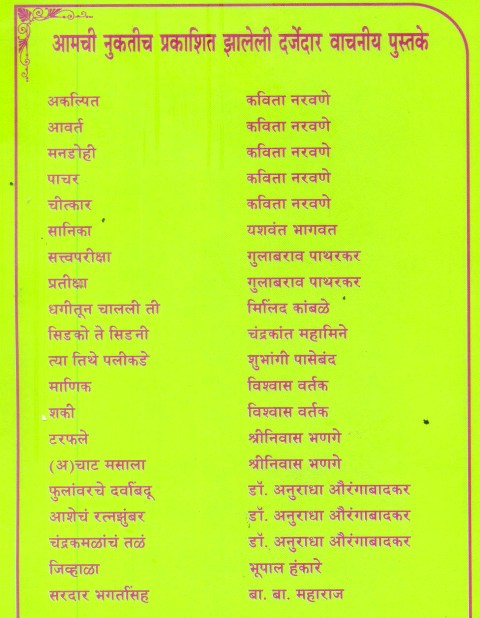 आमची नुकतीच प्रकाशित झालेली दर्जेदार वाचनीय पुस्तके
अकल्पित कविता नरवणे
आवर्त कविता नरवणे
मनडोही कविता नरवणे
पाचर कविता नरवणे
चीत्कार कविता नरवणे
सानिका यशवंत भागवत
सत्त्वपरीक्षा गुलाबराव पाथरकर
प्रतीक्षा गुलाबराव पाथरकर
धगीतून चालली ती मिलिंद कांबळे
सिडको ते सिडनी चंद्रकांत महामिने
त्या तिथे पलीकडे शुभांगी पासेबंद
माणिक विश्वास वर्तक
शकी विश्वास वर्तक
टरफले श्रीनिवास भणगे
(अ)चाट मसाला श्रीनिवास भणगे
फुलांवरचे दवबिंदू डॉ. अनुराधा औरंगाबादकर
आशेचं रत्नझुंबर डॉ. अनुराधा औरंगाबादकर
चंद्रकमळांचं तळं डॉ. अनुराधा औरंगाबादकर
जिव्हाळा भूपाल हंकारे
सरदार भगतसिंह बा. बा. महाराज